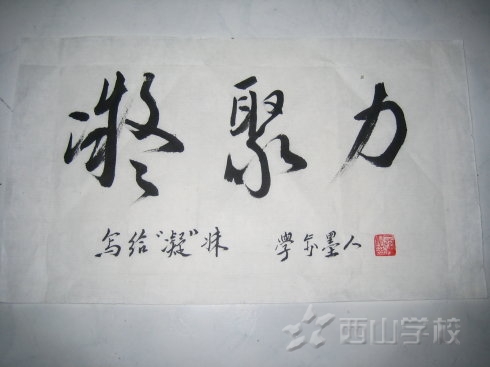 凝聚力
写给"凝"妹 學玄墨人
西山学校